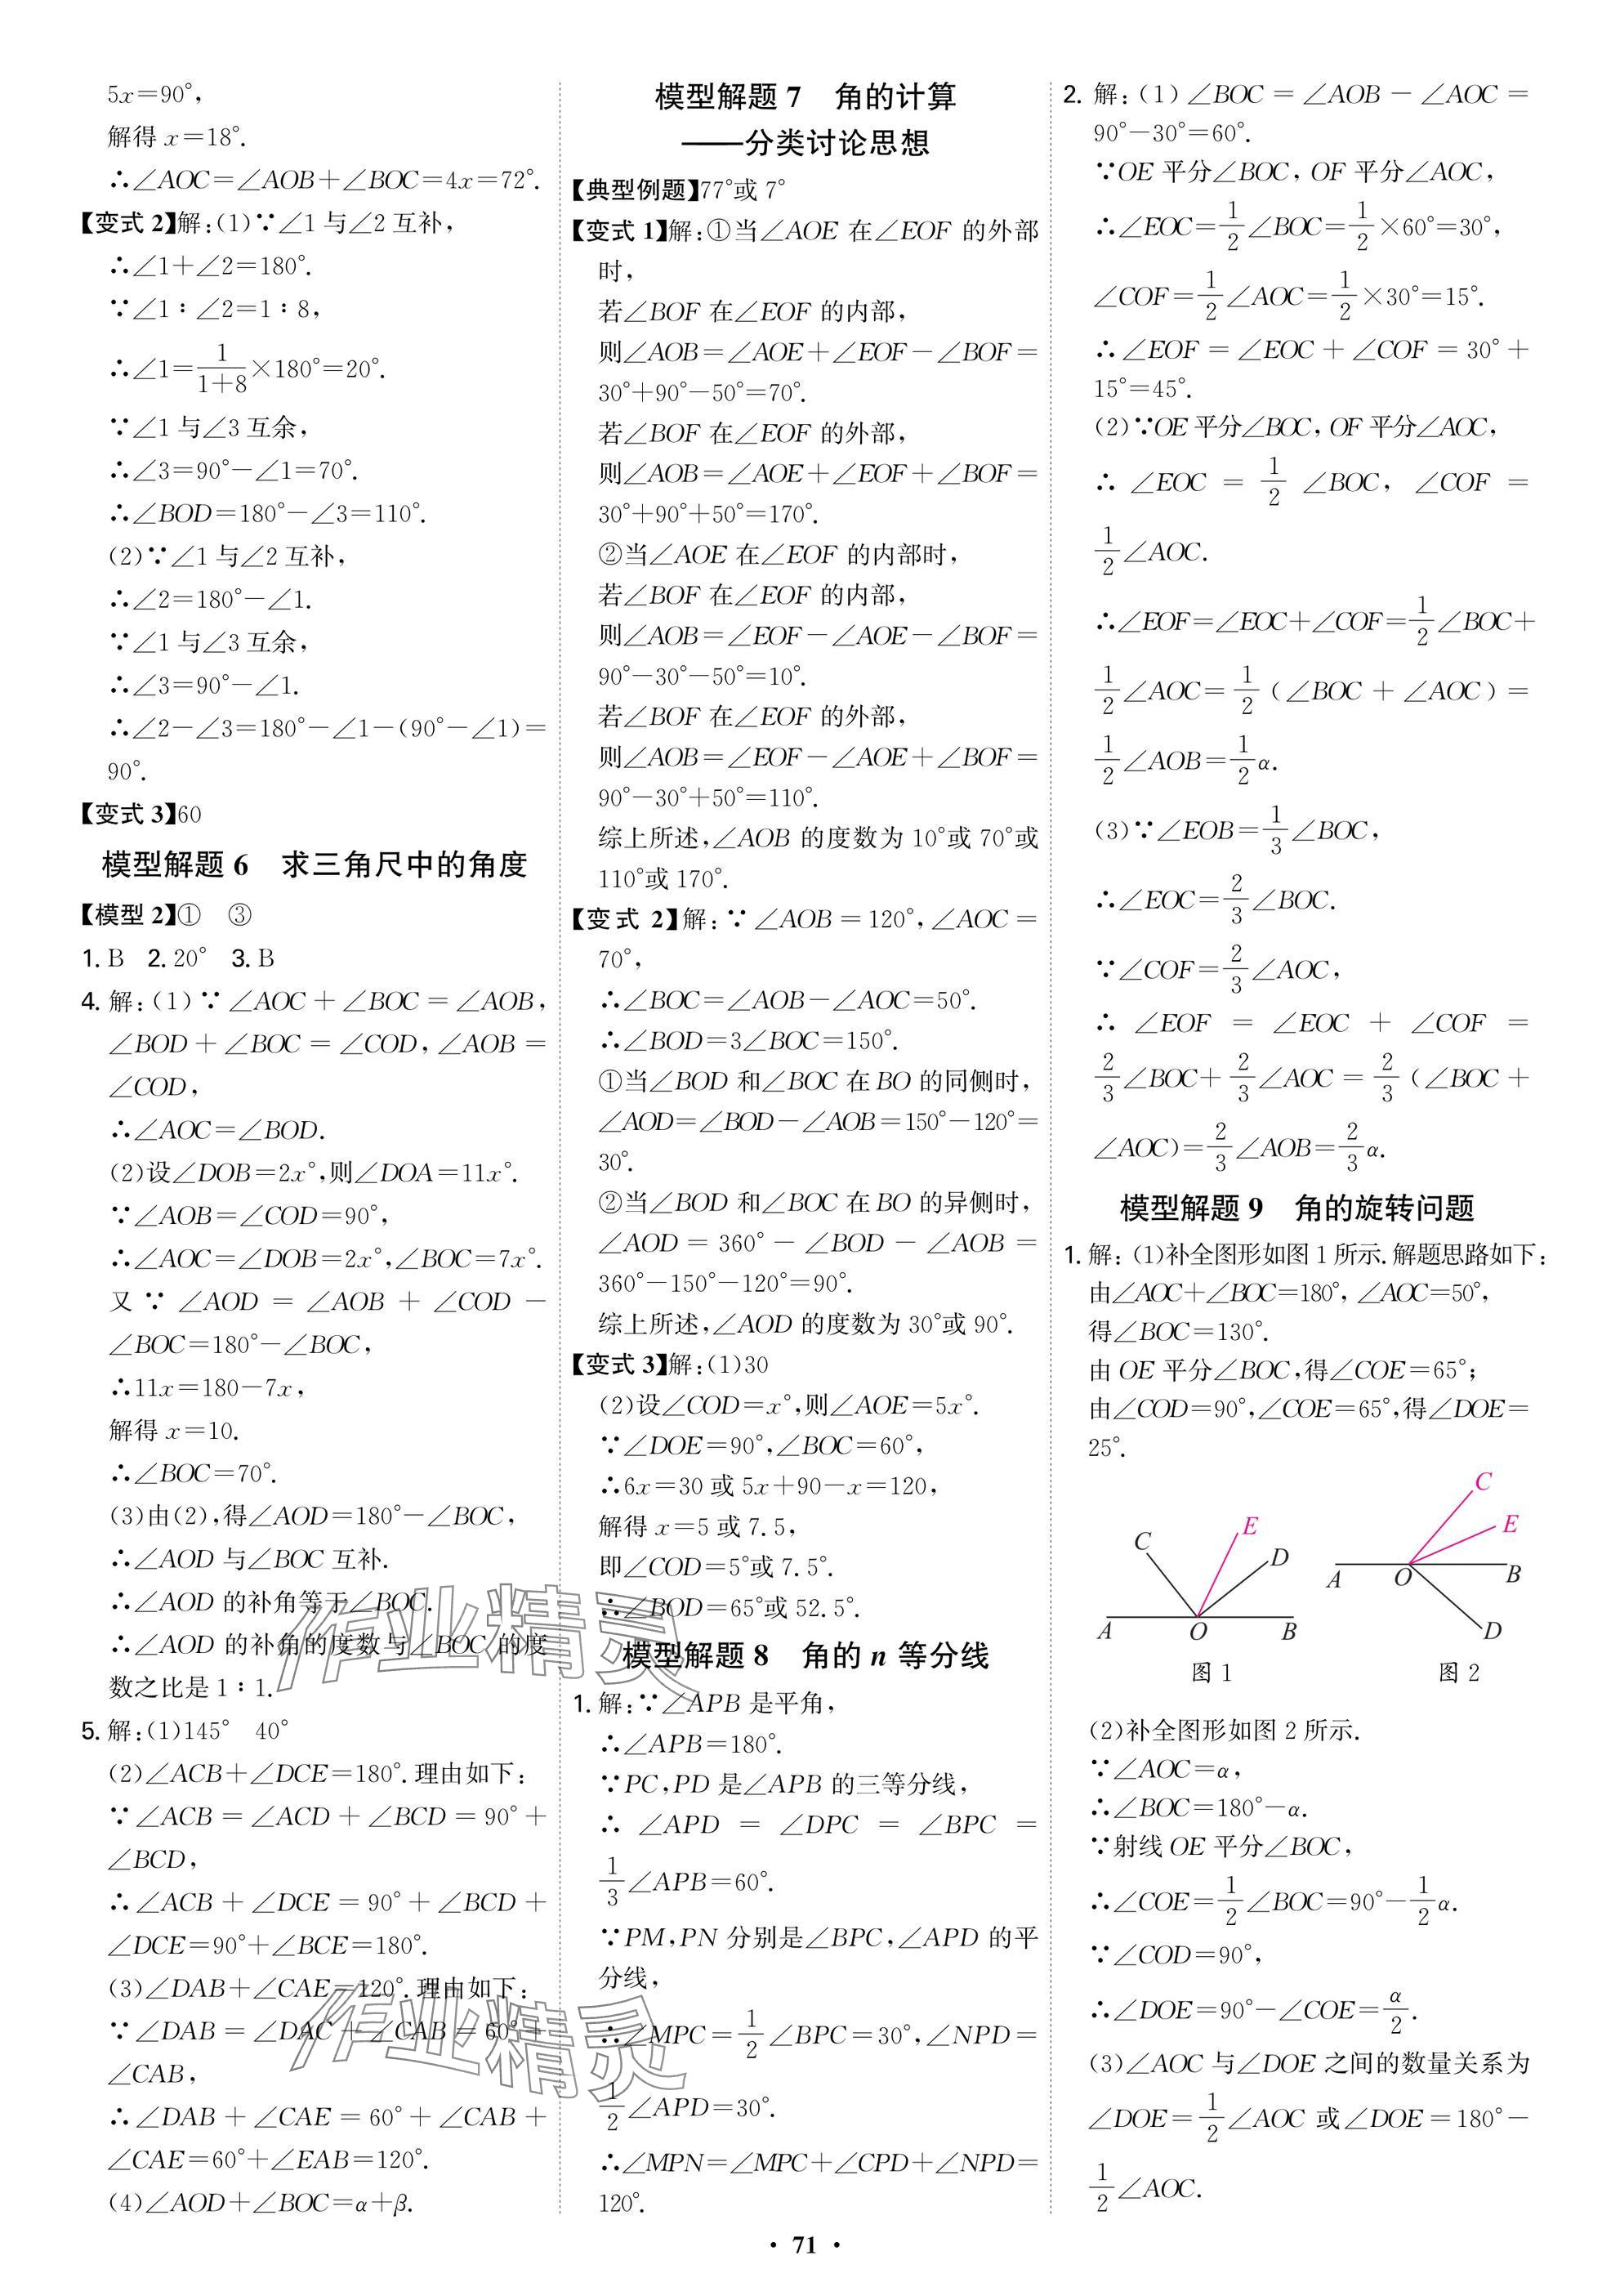 5x=90°,
解得 x=18°.
∴∠AOC=∠AOB+∠BOC=4x=72°.
【变式 2】解:(1)∵∠1 与∠2 互补,
∴∠1+∠2=180°.
∵∠1∶∠2=1∶8,
∴∠1=1/(1+8)×180°=20°.
∵∠1 与∠3 互余,
∴∠3=90°-∠1=70°.
∴∠BOD=180°-∠3=110°.
(2)∵∠1 与∠2 互补,
∴∠2=180°-∠1.
∵∠1 与∠3 互余,
∴∠3=90°-∠1.
∴∠2-∠3=180°-∠1-(90°-∠1)=
90°.
【变式 3】60
模型解题 6 求三角尺中的角度
【模型 2】① ③
1. B 2. 20° 3. B
4. 解:(1)∵∠AOC+∠BOC=∠AOB,
∠BOD+∠BOC=∠COD,∠AOB=
∠COD,
∴∠AOC=∠BOD.
(2)设∠DOB=2x°,则∠DOA=11x°.
∵∠AOB=∠COD=90°,
∴∠AOC=∠DOB=2x°,∠BOC=7x°.
又∵∠AOD=∠AOB+∠COD-
∠BOC=180°-∠BOC,
∴11x=180-7x,
解得 x=10.
∴∠BOC=70°.
(3)由(2),得∠AOD=180°-∠BOC,
∴∠AOD 与∠BOC 互补.
∴∠AOD 的补角等于∠BOC.
∴∠AOD 的补角的度数与∠BOC 的度
数之比是 1∶1.
5. 解:(1)145° 40°
(2)∠ACB+∠DCE=180°.理由如下:
∵∠ACB=∠ACD+∠BCD=90°+
∠BCD,
∴∠ACB+∠DCE=90°+∠BCD+
∠DCE=90°+∠BCE=180°.
(3)∠DAB+∠CAE=120°.理由如下:
∵∠DAB=∠DAC+∠CAB=60°+
∠CAB,
∴∠DAB+∠CAE=60°+∠CAB+
∠CAE=60°+∠EAB=120°.
(4)∠AOD+∠BOC=α+β.
模型解题 7 角的计算
——分类讨论思想
【典型例题】77°或 7°
【变式 1】解:①当∠AOE 在∠EOF 的外部
时,
若∠BOF 在∠EOF 的内部,
则∠AOB=∠AOE+∠EOF-∠BOF=
30°+90°-50°=70°.
若∠BOF 在∠EOF 的外部,
则∠AOB=∠AOE+∠EOF+∠BOF=
30°+90°+50°=170°.
②当∠AOE 在∠EOF 的内部时,
若∠BOF 在∠EOF 的内部,
则∠AOB=∠EOF-∠AOE-∠BOF=
90°-30°-50°=10°.
若∠BOF 在∠EOF 的外部,
则∠AOB=∠EOF-∠AOE+∠BOF=
90°-30°+50°=110°.
综上所述,∠AOB 的度数为 10°或 70°或
110°或 170°.
【变式 2】解:∵∠AOB=120°,∠AOC=
70°,
∴∠BOC=∠AOB-∠AOC=50°.
∴∠BOD=3∠BOC=150°.
①当∠BOD 和∠BOC 在 BO 的同侧时,
∠AOD=∠BOD-∠AOB=150°-120°=
30°.
②当∠BOD 和∠BOC 在 BO 的异侧时,
∠AOD=360°-∠BOD-∠AOB=
360°-150°-120°=90°.
综上所述,∠AOD 的度数为 30°或 90°.
【变式 3】解:(1)30
(2)设∠COD=x°,则∠AOE=5x°.
∵∠DOE=90°,∠BOC=60°,
∴6x=30 或 5x+90-x=120,
解得 x=5 或 7.5,
即∠COD=5°或 7.5°.
∴∠BOD=65°或 52.5°.
模型解题 8 角的 n 等分线
1. 解:∵∠APB 是平角,
∴∠APB=180°.
∵PC,PD 是∠APB 的三等分线,
∴∠APD=∠DPC=∠BPC=
1/3∠APB=60°.
∵PM,PN 分别是∠BPC,∠APD 的平
分线,
∴∠MPC=1/2∠BPC=30°,∠NPD=
1/2∠APD=30°.
∴∠MPN=∠MPC+∠CPD+∠NPD=
120°.
2. 解:(1)∠BOC=∠AOB-∠AOC=
90°-30°=60°.
∵OE 平分∠BOC, OF 平分∠AOC,
∴∠EOC=1/2∠BOC=1/2×60°=30°,
∠COF=1/2∠AOC=1/2×30°=15°.
∴∠EOF=∠EOC+∠COF=30°+
15°=45°.
(2)∵OE 平分∠BOC, OF 平分∠AOC,
∴∠EOC=1/2∠BOC, ∠COF=
1/2∠AOC.
∴∠EOF=∠EOC+∠COF=1/2∠BOC+
1/2∠AOC=1/2(∠BOC+∠AOC)=
1/2∠AOB=1/2α.
(3)∵∠EOB=1/3∠BOC,
∴∠EOC=2/3∠BOC.
∵∠COF=2/3∠AOC,
∴∠EOF=∠EOC+∠COF=
2/3∠BOC+2/3∠AOC=2/3(∠BOC+
∠AOC)=2/3∠AOB=2/3α.
模型解题 9 角的旋转问题
1. 解:(1)补全图形如图 1 所示. 解题思路如下:
由∠AOC+∠BOC=180°, ∠AOC=50°,
得∠BOC=130°.
由 OE 平分∠BOC,得∠COE=65°;
由∠COD=90°,∠COE=65°,得∠DOE=
25°.
C E D A O B
图 1
C E A O B D
图 2
(2)补全图形如图 2 所示.
∵∠AOC=α,
∴∠BOC=180°-α.
∵射线 OE 平分∠BOC,
∴∠COE=1/2∠BOC=90°-1/2α.
∵∠COD=90°,
∴∠DOE=90°-∠COE=α/2.
(3)∠AOC 与∠DOE 之间的数量关系为
∠DOE=1/2∠AOC 或∠DOE=180°-
1/2∠AOC.
· 71 ·
作业精灵
作业精灵